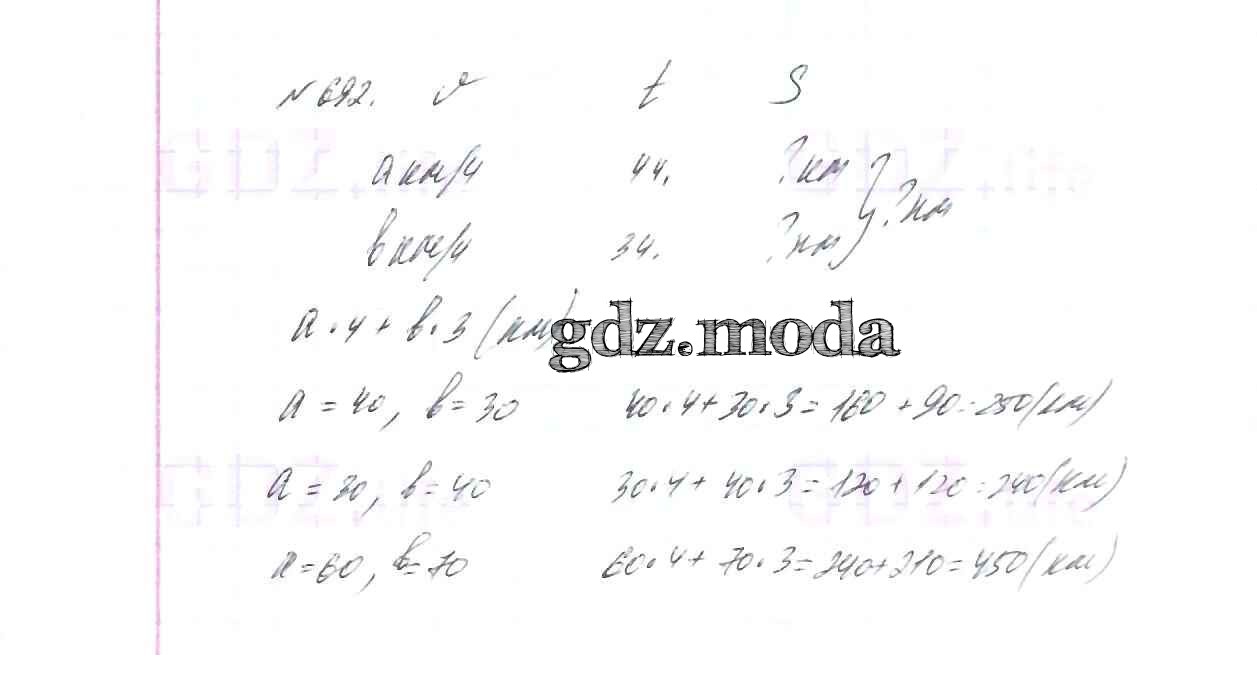 №692. v t S
a км/ч 4ч. ?км
?км
b км/ч 3ч. ?км
a·4+b·3 (км)
gdz.moda
a=40, b=30 40·4+30·3=160+90=250(км)
a=30, b=40 30·4+40·3=120+120=240(км)
a=60, b=70 60·4+70·3=240+210=450(км)